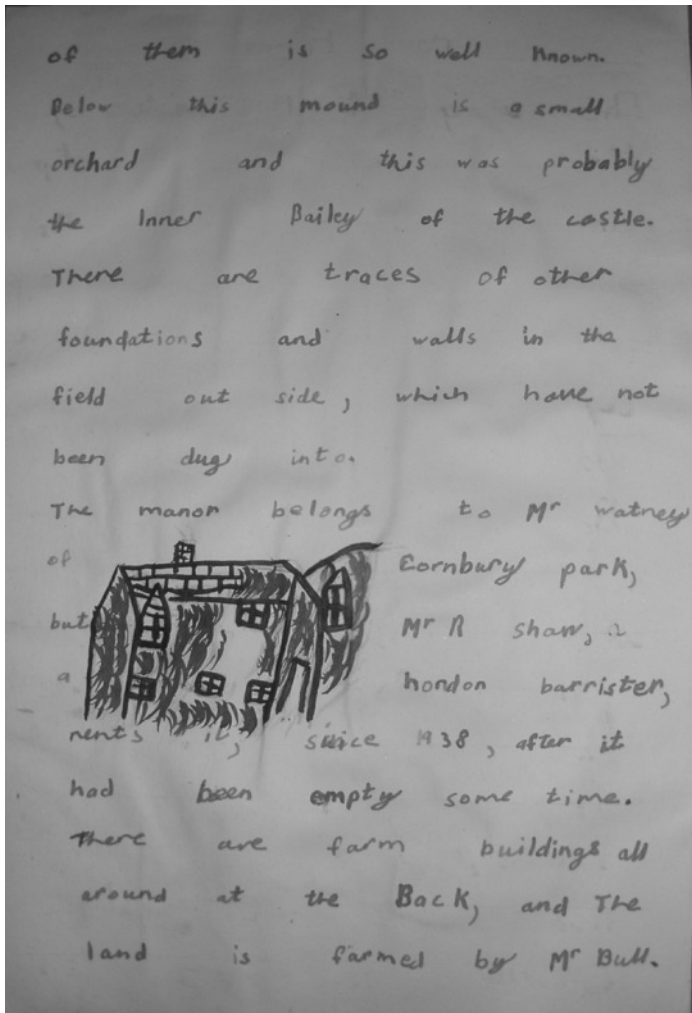 of them is so well known.
Below this mound is a small
orchard and this was probably
the Inner Bailey of the castle.
There are traces of other
foundations and walls in the
field out side, which have not
been dug into.
The manor belongs to Mr watney
of Cornbury park,
but Mr R shaw,
a London barrister,
rents it, since 1938, after it
had been empty some time.
There are farm buildings all
around at the Back, and The
land is farmed by Mr Bull.